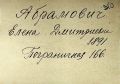 Абрамович
Елена Дмитриевна
1891
Пограничная 166.